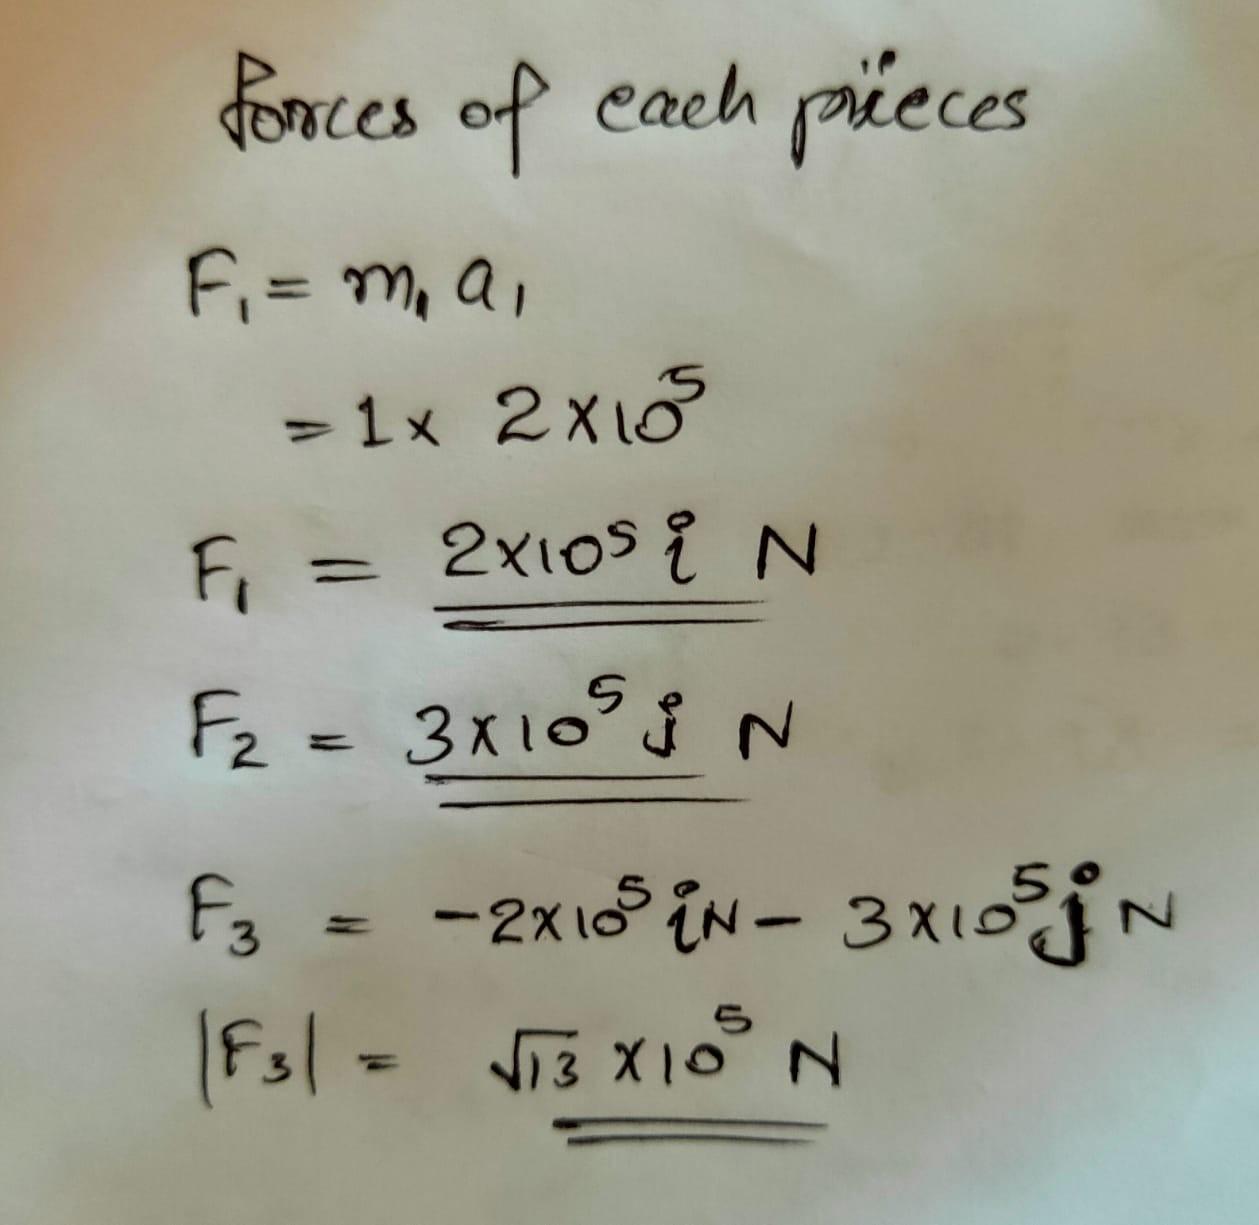 forces of each pieces
F₁ = m₁ a₁
= 1 x 2 x 10⁵
F₁ = 2x10⁵ i N
F₂ = 3x10⁵ j N
F₃ = -2x10⁵ i N - 3x10⁵ j N
|F₃| = √13 x10⁵ N